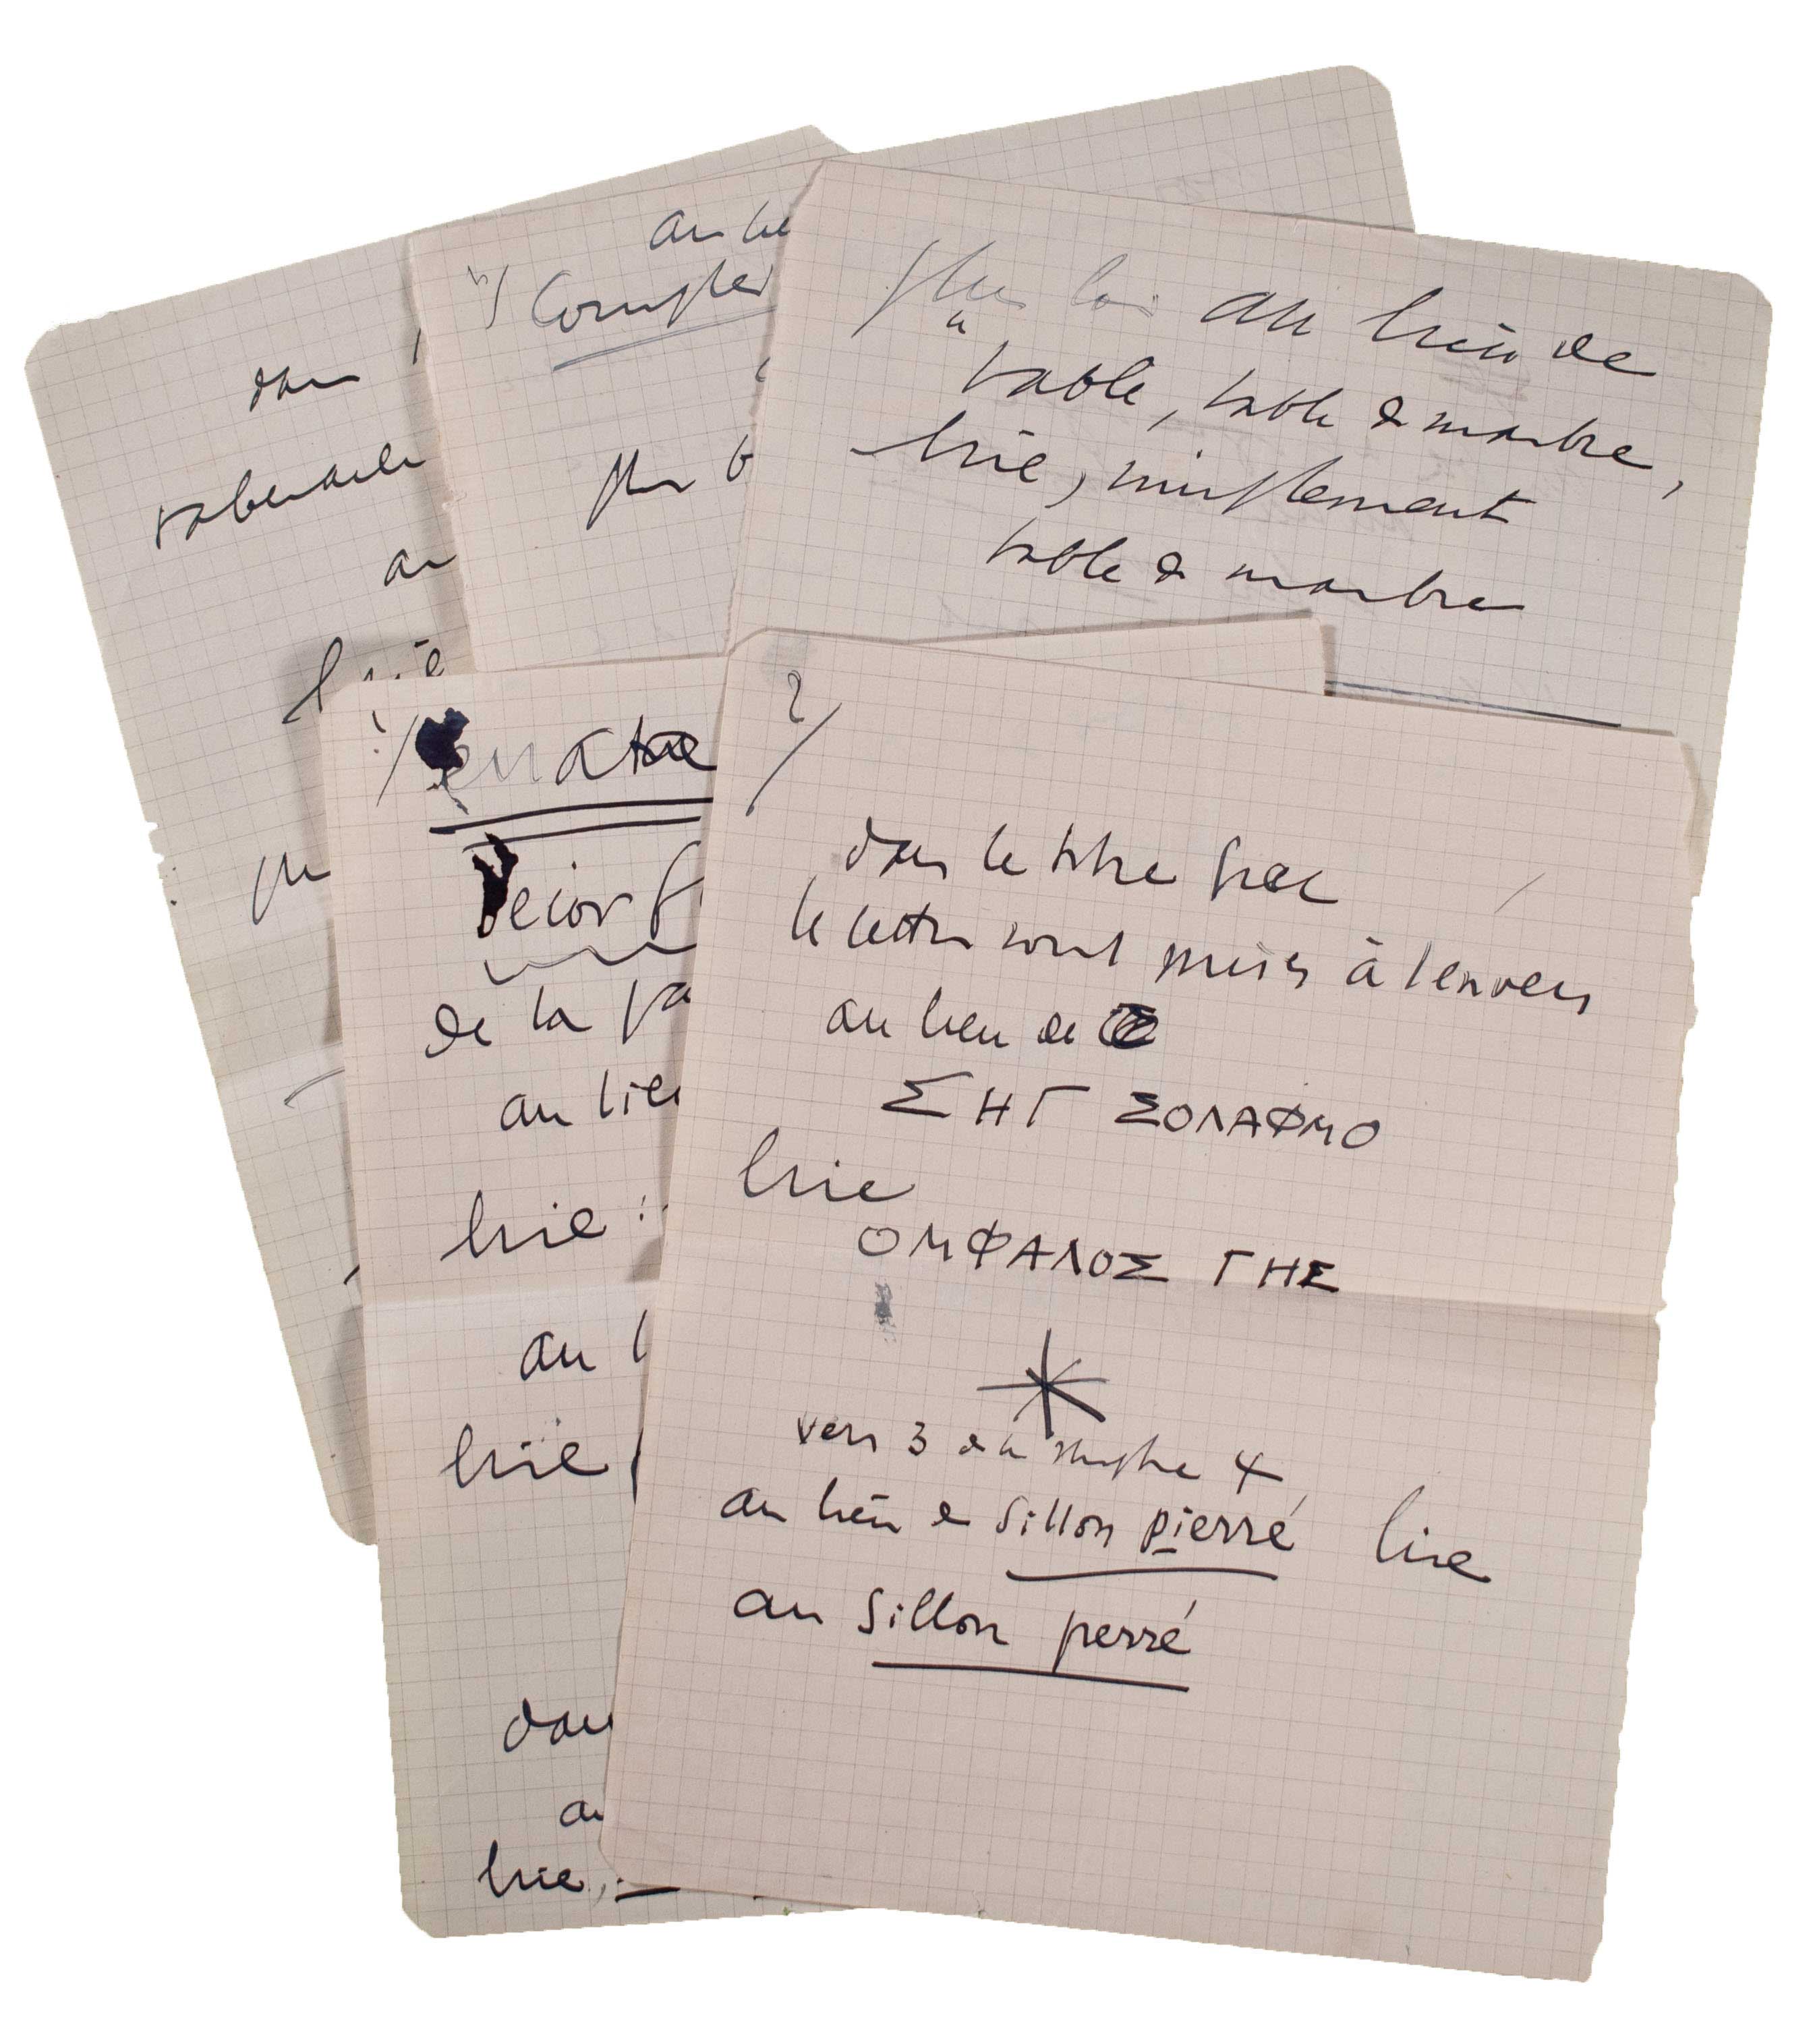 dans
au
lire
au lie
Complet
plus b
plus loin au lieu de
table, table de marbre,
lire, simplement
table de marbre
1/ errata
de la pa
au lieu
lire :
au l
lire
dans
au
lire
2/
dans le titre grec
les lettres sont mises à l'envers
au lieu de
ΣΗΓ ΣΟΛΑΦΜΟ
lire
ΟΜΦΑΛΟΣ ΓΗΣ
vers 3 de la strophe 4
au lieu de sillon pierré lire
au sillon perré